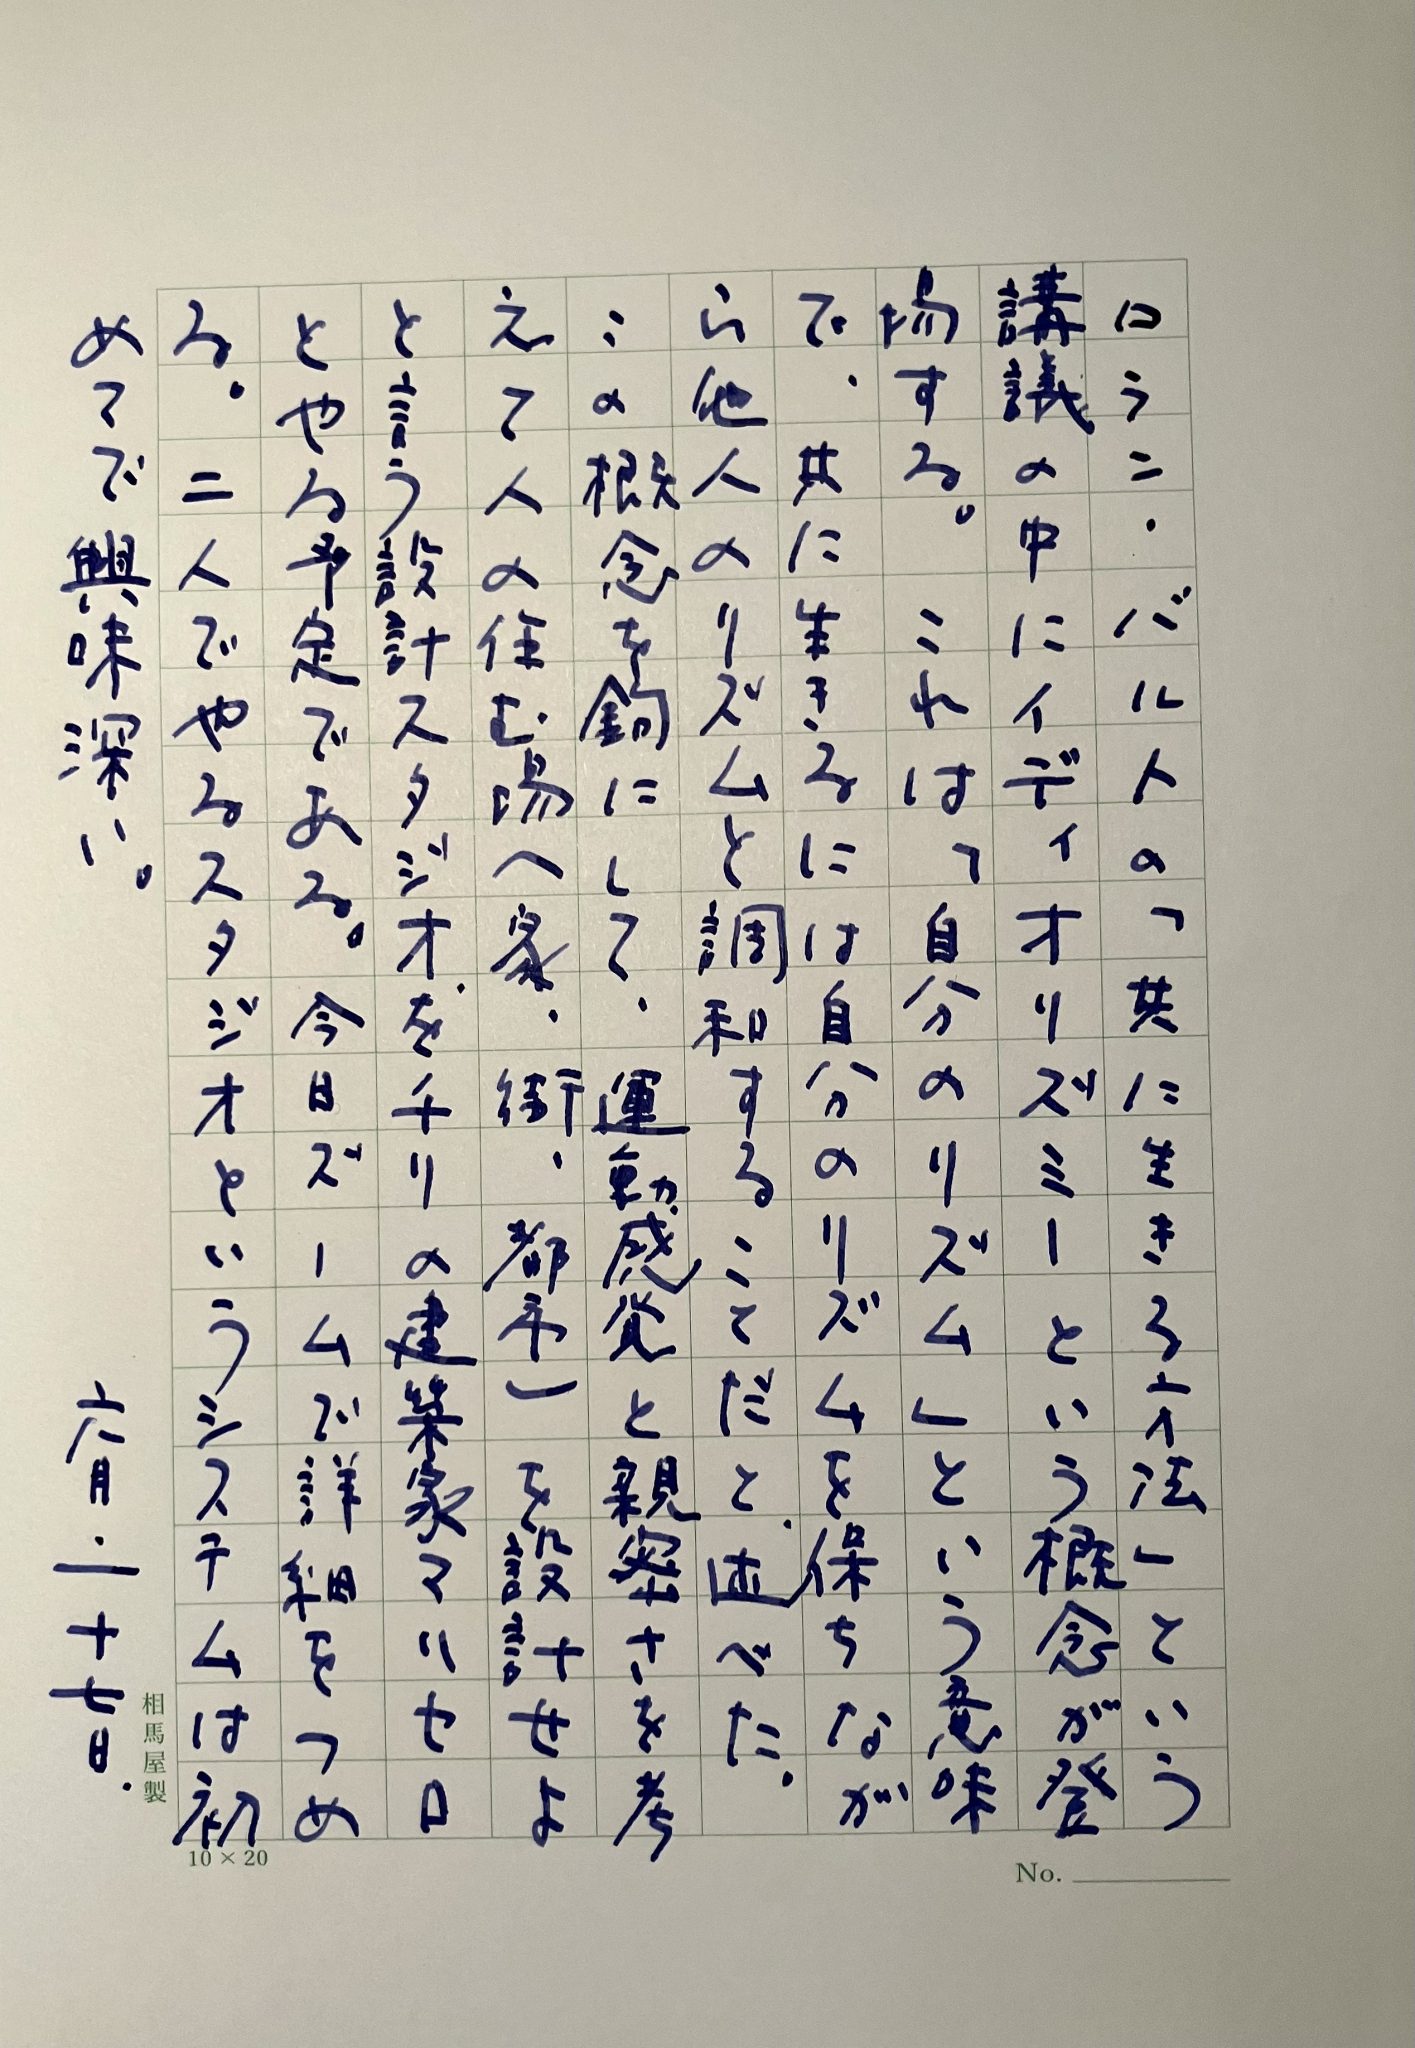 ロラン・バルトの「共に生きる方法」という
講議の中にイディオリズミーという概念が登
場する。これは「自分のリズム」という意味
で、共に生きるには自分のリズムを保ちなが
ら他人のリズムと調和することだと、述べた。
この概念を鉤にして、運動感覚と親密さを考
えて人の住む場（家、街、都市）を設計せよ
と言う設計スタジオをチリの建築家マリセロ
とやる予定である。今日ズームで詳細をつめ
る。二人でやるスタジオというシステムは初
めてで興味深い。
六月・二十七日.
相馬屋製
10×20
No.